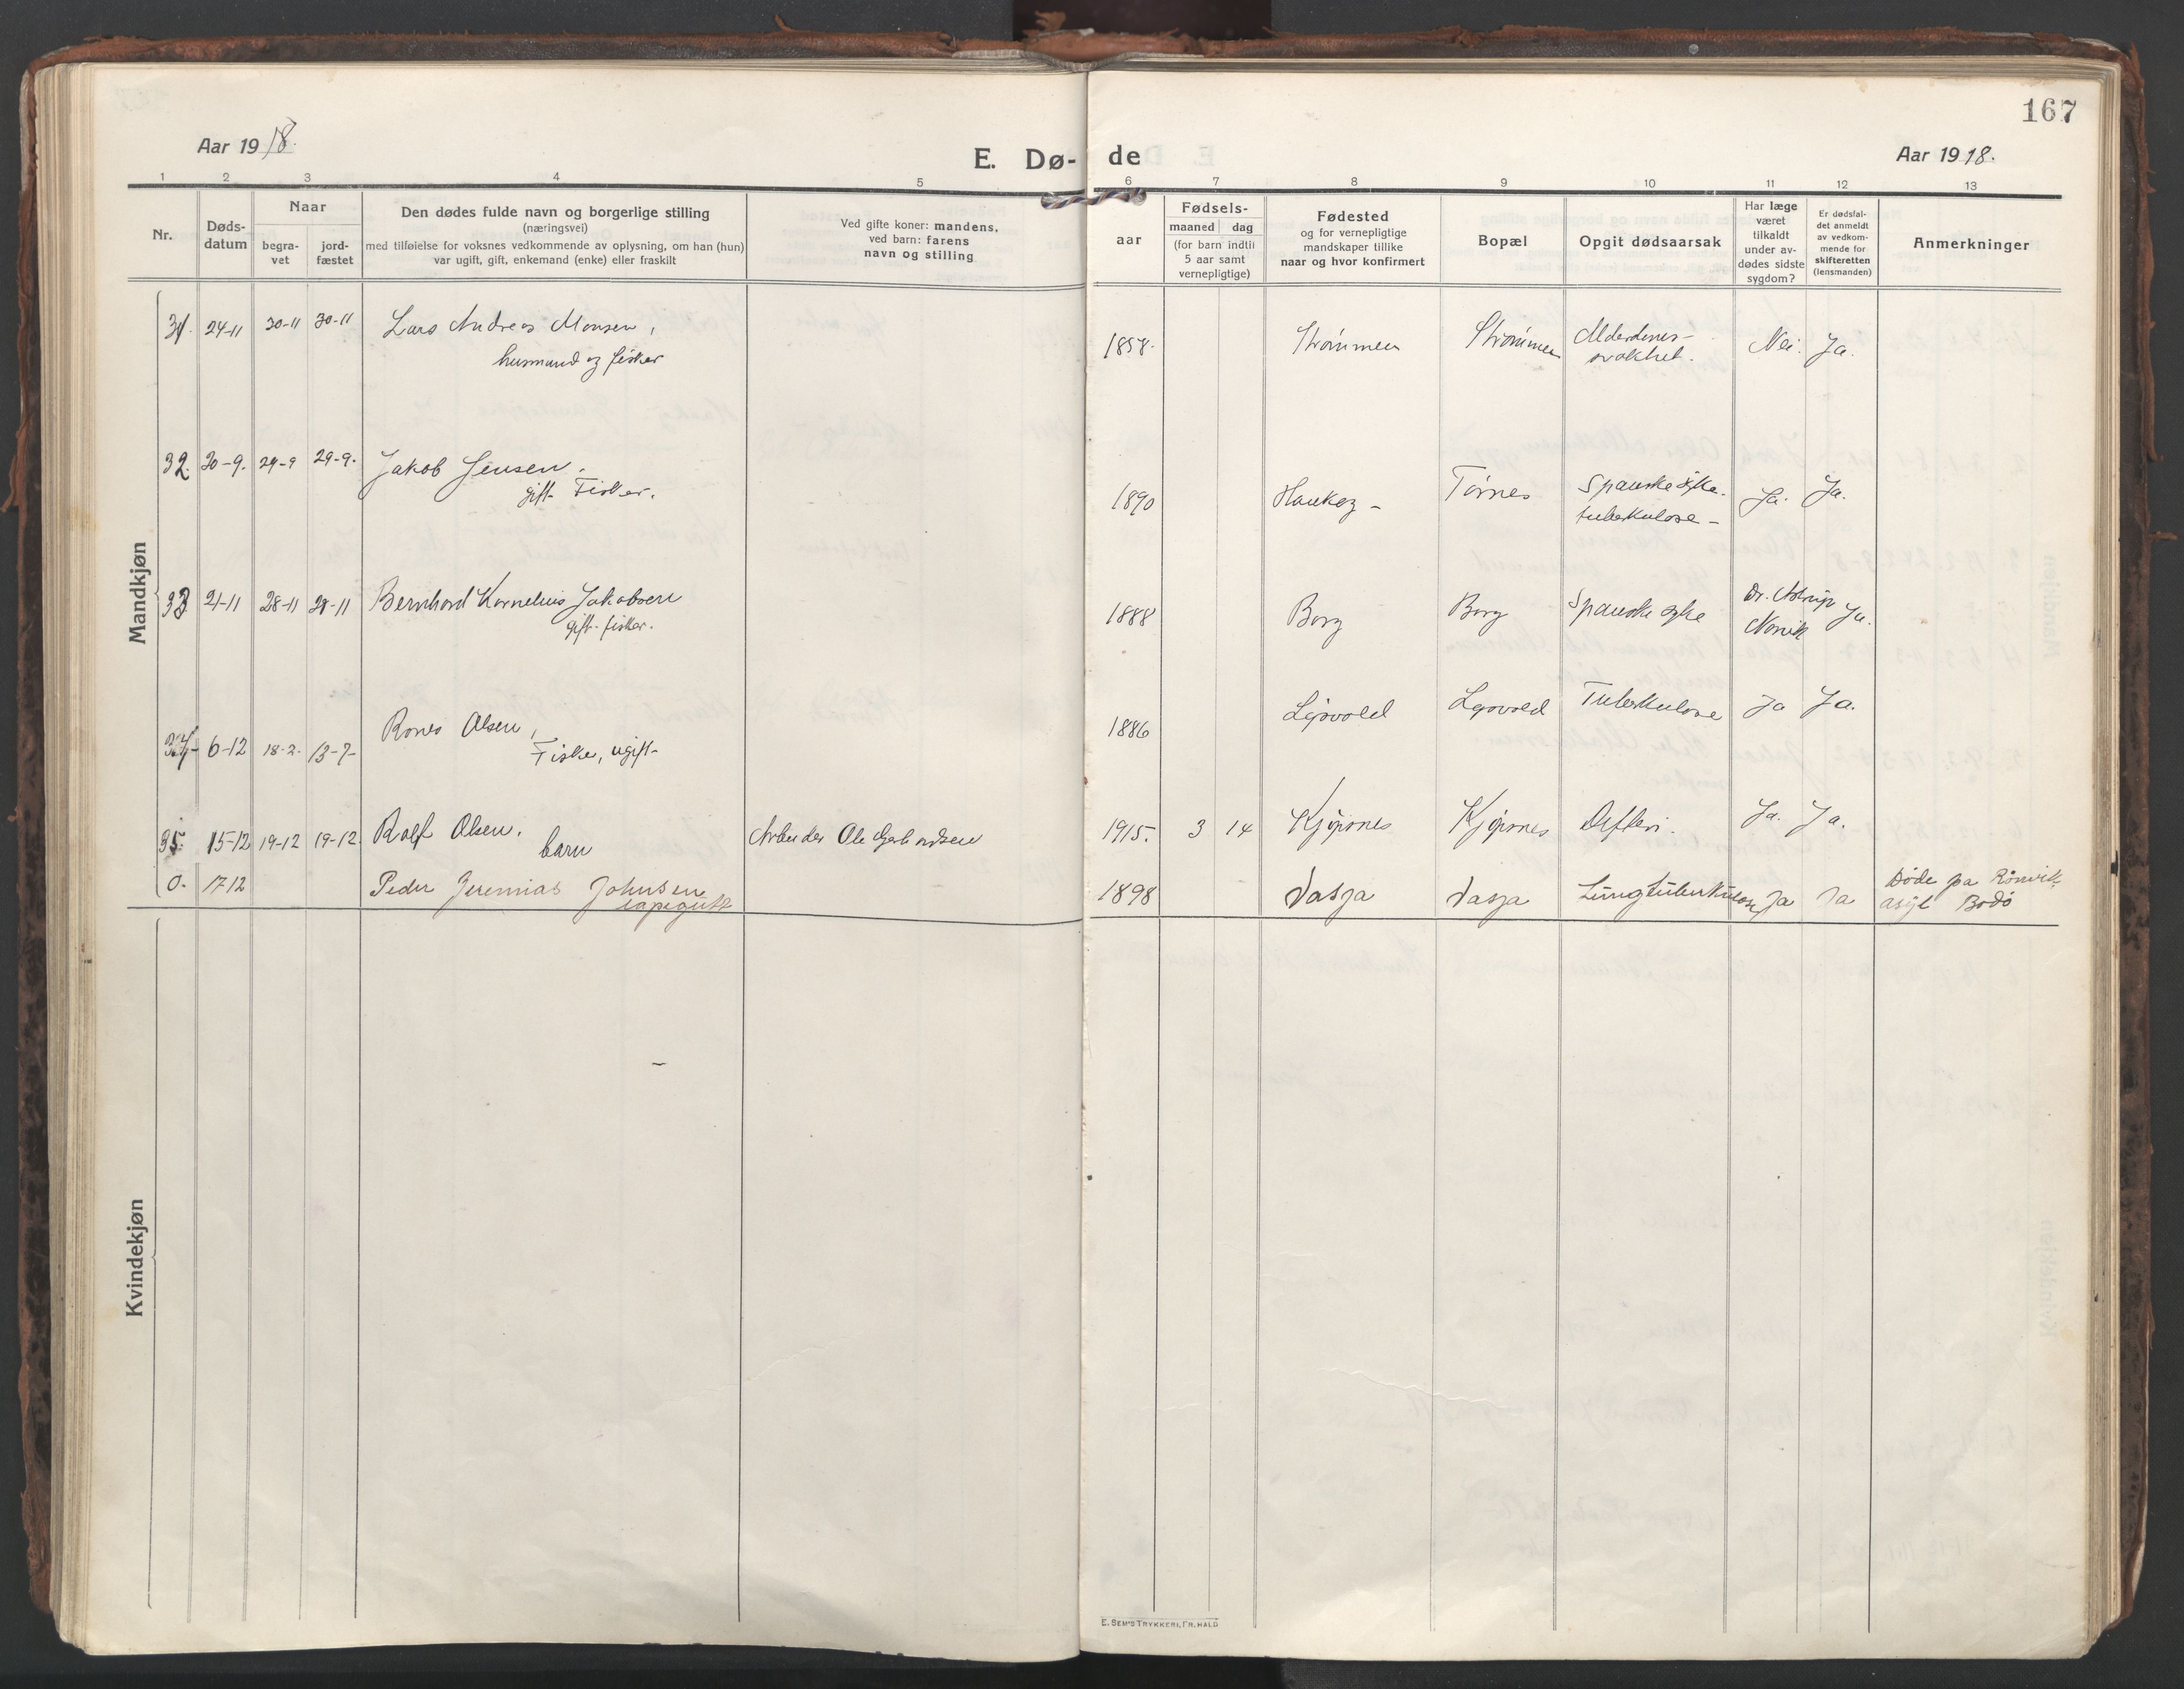 167
Aar 1918.
E. Dø- de
Aar 1918.
1 2 3 4 5 6 7 8 9 10 11 12 13
Nr.
Døds-
datum
Naar
begra-
vet
jord-
fæstet
Den dødes fulde navn og borgerlige stilling
(næringsvei)
med tilføielse for voksnes vedkommende av oplysning, om han (hun)
var ugift, gift, enkemand (enke) eller fraskilt
Ved gifte koner: mandens,
ved barn: farens
navn og stilling
aar
Fødsels-
maaned dag
(for barn indtil
5 aar samt
vernepligtige)
Fødested
og for vernepligtige
mandskaper tillike
naar og hvor konfirmert
Bopæl
Opgit dødsaarsak
Har læge
været
tilkaldt
under av-
dødes sidste
sygdom?
Er dødsfal-
det anmeldt
av vedkom-
mende for
skifteretten
(lensmanden)
Anmerkninger
Mandkjøn
31. 24-11 30-11 30-11 Lars Andreas Monsen, 1858. Strømmen Strømmen Alderdoms-
husmand og fisker svakhet. Nei. Ja.
32. 20-9. 29-9 29-9. Jakob Jensen. 1890 Haukøy - Tornes Spanske syke. Ja. Ja.
gift. Fisker. tuberkulose -
33 21-11 28-11 28-11 Bernhard Kornelius Jakobsen 1888 Borg Borg Spanske syke Dr. Astrup Ja.
gift. fisker. Narvik
34- 6-12 18-2. 13-7- Olsen, 1886 Tuberkulose Ja Ja.
Fisker, ugift-
35. 15-12 19-12 19-12. Rolf Olsen. Arbeider Ole 1915. 3 14 Kjøpsnes Kjøpsnes Difteri. Ja. Ja.
barn
0. 17 12 Peder Jeremias Johnsen 1898 Vasja Vasja Lungtuberkulose Ja Ja Døde pa Rønvik
lapegutt asyl Bodø
Kvindekjøn
E. SEM'S TRYKKERI, FR. HALD